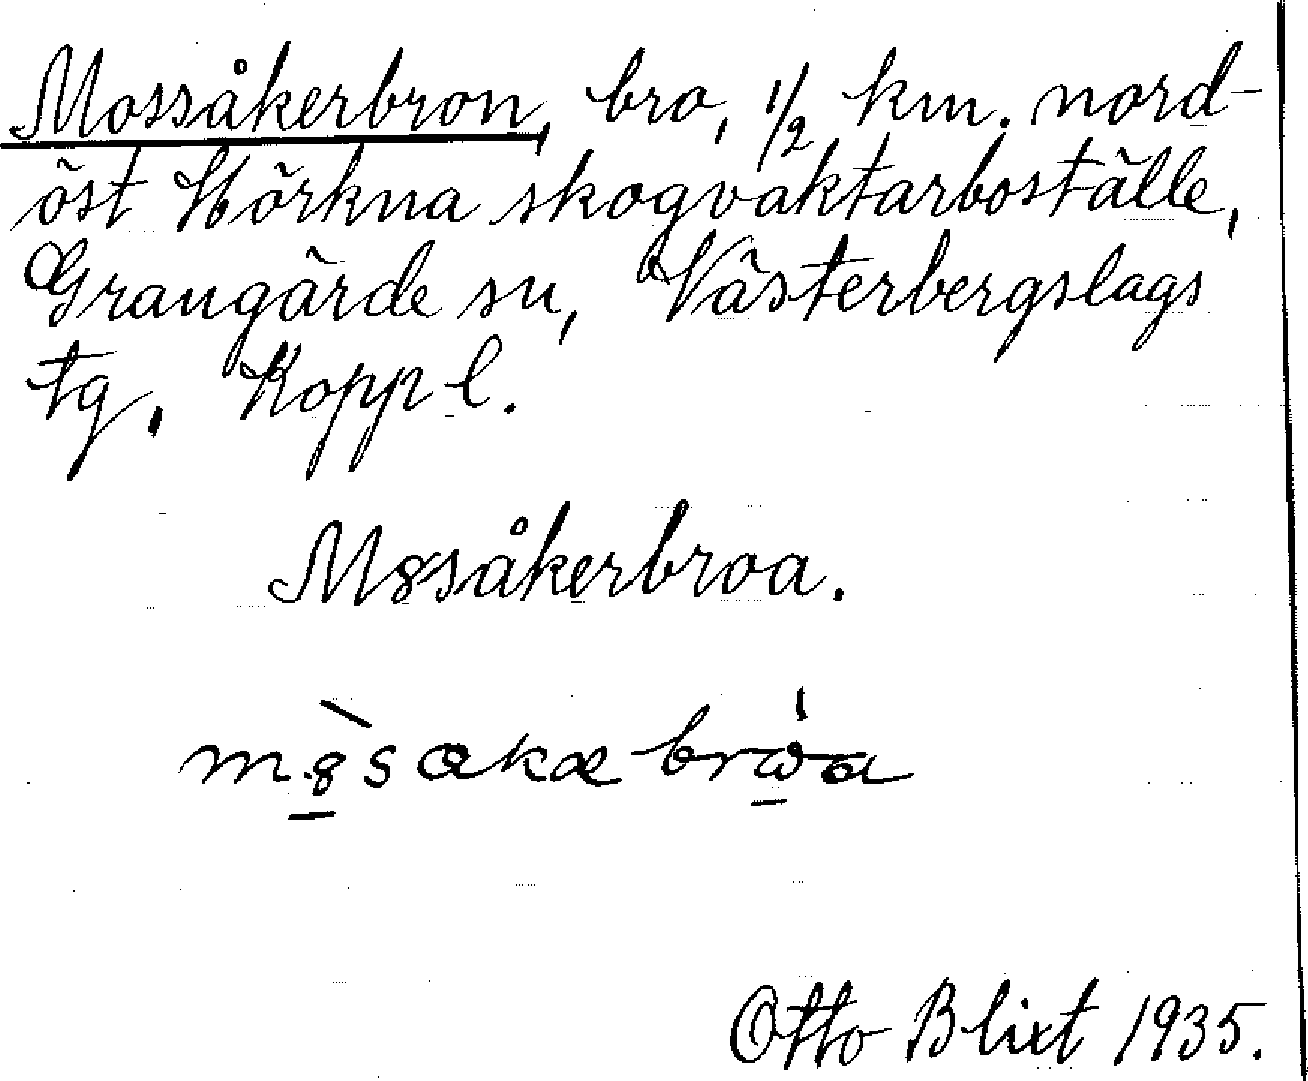 Mossåkerbron, bro, 1/2 km. nord-
öst Hörkna skogvaktarboställe,
Grangärde sn, Västerbergslags
tg. Kopp l.
M8såkerbroa.
m8̀sakæbrẁa
Otto Blixt 1935.